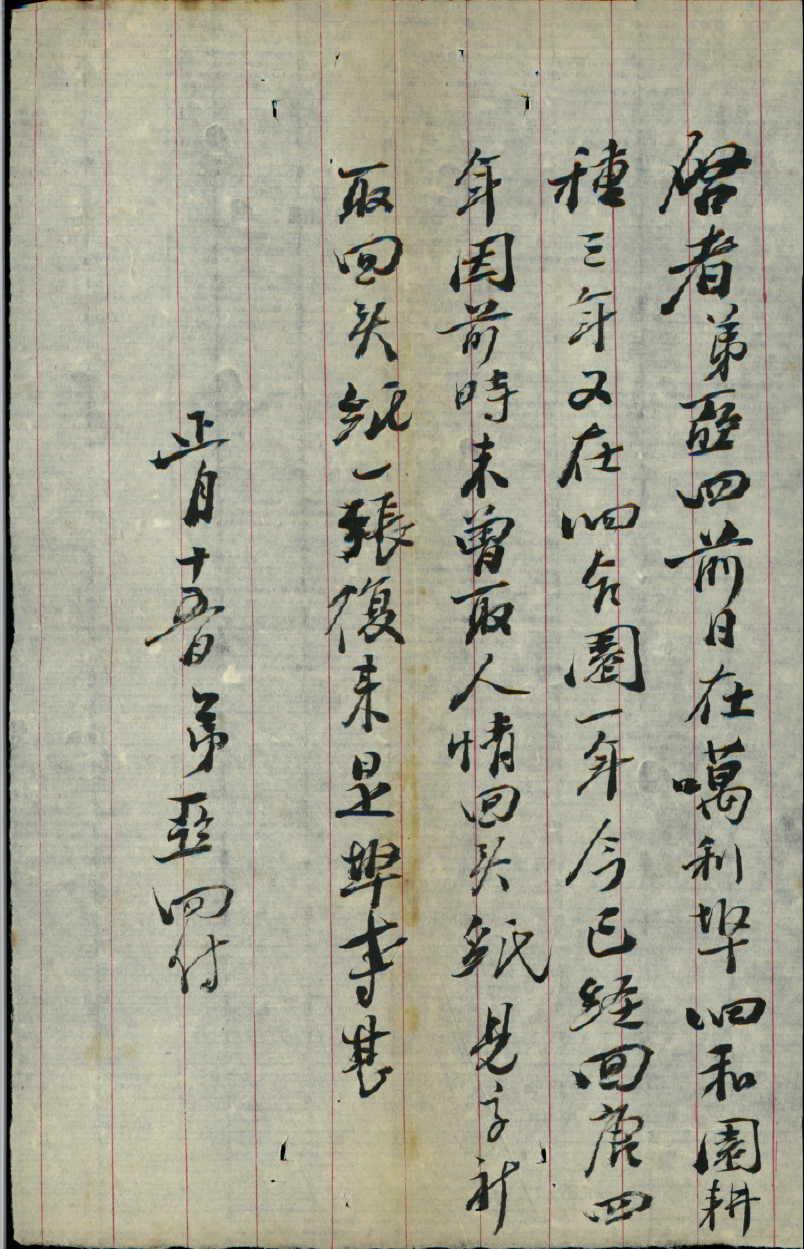 啓者弟亞四前日在噧利埠泗和園耕
種三年又在泗合園一年今已経回唐四
年因前時未曾取人情回头紙見字祈
取回头紙一張復来是埠幸甚
正月十五日弟亞四付